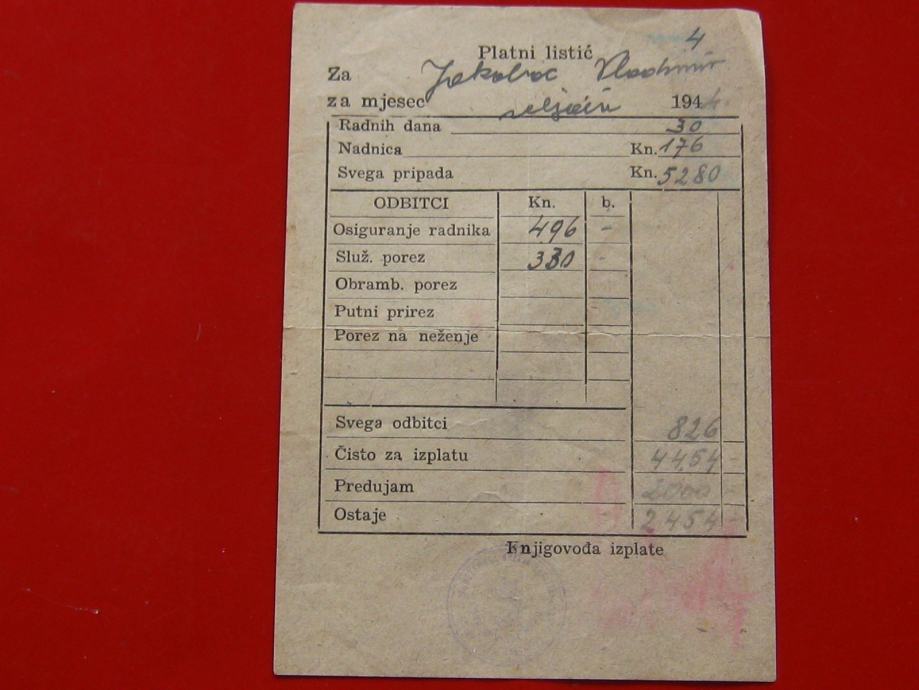 4
Platni listić
Za Jakobac Vladimir
za mjesec siječnj 194
Radnih dana 30
Nadnica Kn. 176
Svega pripada Kn. 5280
ODBITCI Kn. b.
Osiguranje radnika 496 -
Služ. porez 330 -
Obramb. porez
Putni prirez
Porez na neženje
Svega odbitci 826
Čisto za izplatu 4454 -
Predujam 2000 -
Ostaje 2454 -
Knjigovođa izplate